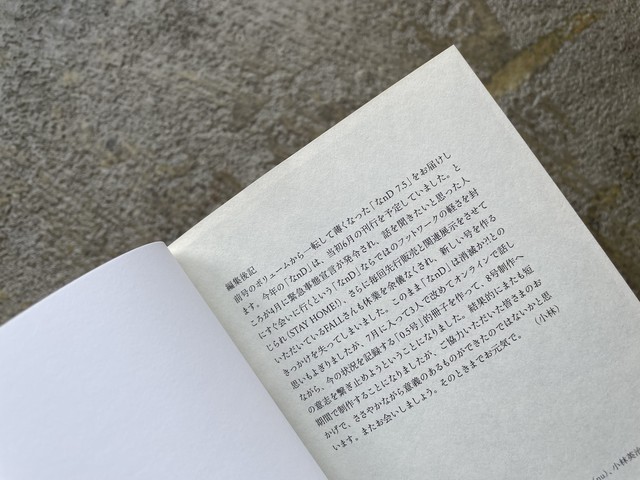 編集後記
前号のボリュームから一転して薄くなった「なnD 7.5」をお届けし
ます。今年の「なnD」は、当初6月の刊行を予定していました。と
ころが4月に緊急事態宣言が発令され、話を聞きたいと思った人
にすぐ会いに行くという「なnD」ならではのフットワークの軽さを封
じられ(STAY HOME!)、さらに毎回先行販売と関連展示をさせて
いただいているFALLさんも休業を余儀なくされ、新しい号を作る
きっかけを失ってしまいました。このまま「なnD」は消滅か?!との
思いもよぎりましたが、7月に入って3人で改めてオンラインで話し
ながら、今の状況を記録する「0.5号」的冊子を作って、8号制作へ
の意志を繋ぎ止めようということになりました。結果的にまたも短
期間で制作することになりましたが、ご協力いただいた皆さまのお
かげで、ささやかながら意義のあるものができたのではないかと思
います。またお会いしましょう。そのときまでお元気で。
(小林)
nu)、小林英治